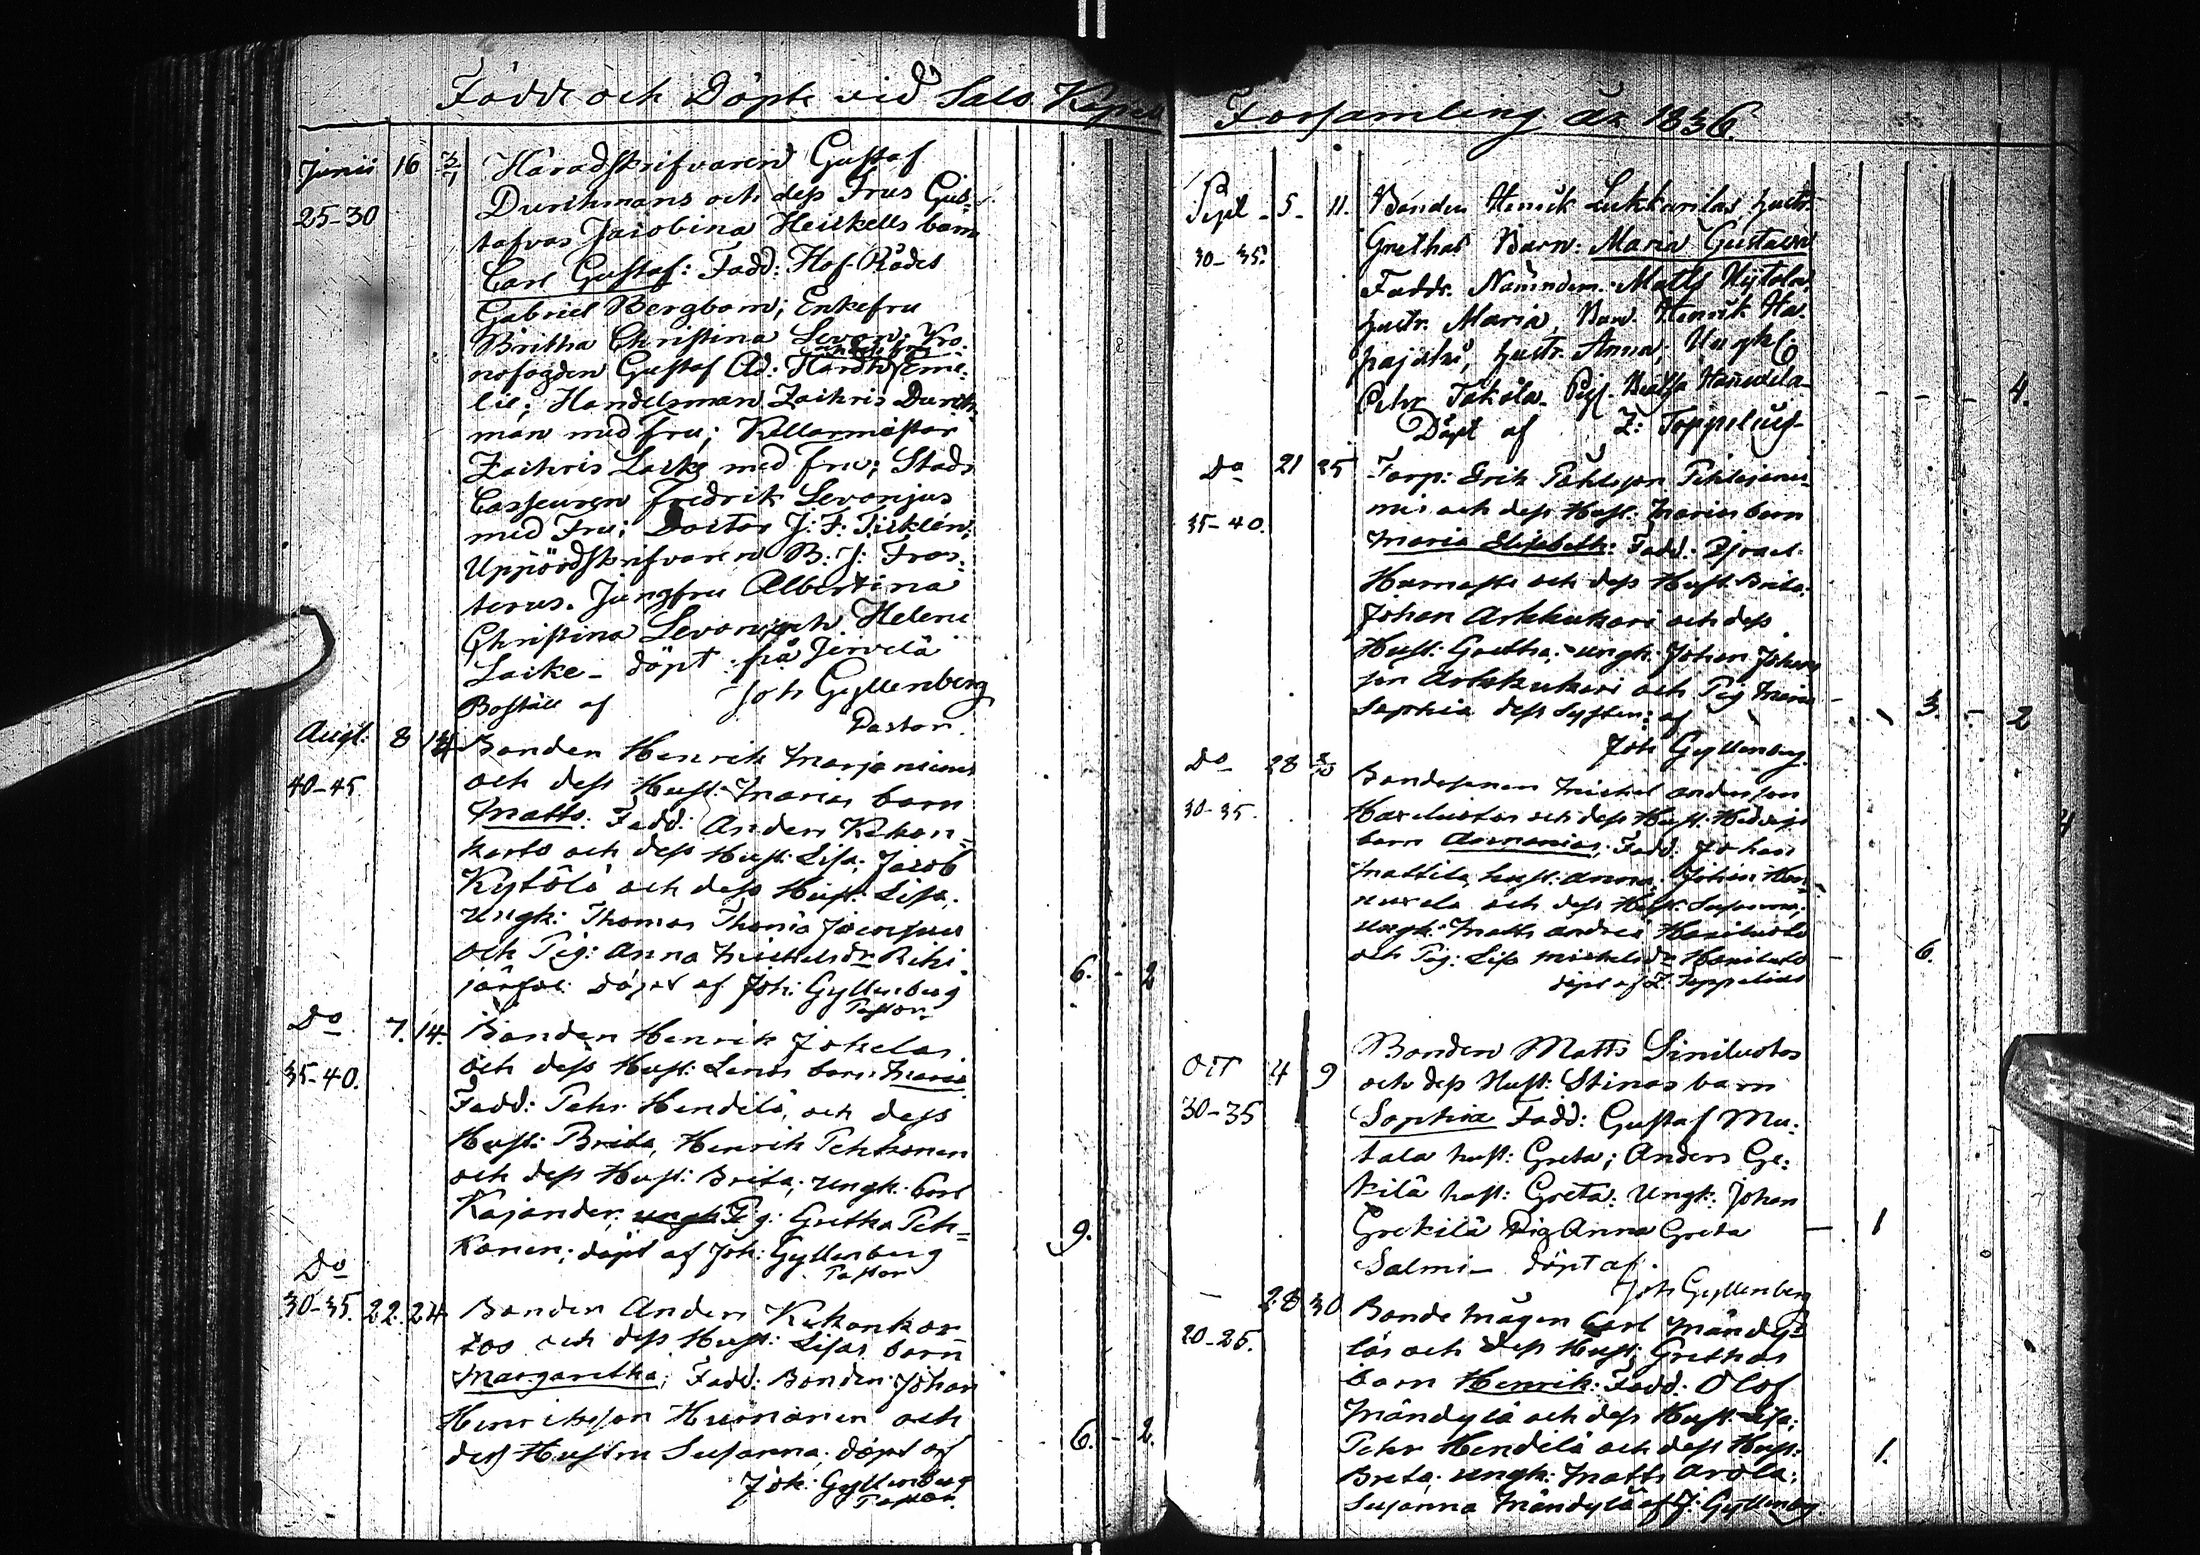 Födde och Döpte vid Salo Kapell
Församling År 1836.
Junii 16 3/7 Häradskrifvaren Gustaf
25-30 Durchmans och dess Frus Gus-
tafvas Jacobina Heickells barn
Carl Gustaf: Fadd: Hof-Rådet
Gabriel Bergbom; Enkefru
Britha Christina Levon; Kro-
nofogden Gustaf Ad: Hårdh Eme-
lie; Handelsman Zachris Durch-
man med fru; Källarmästar
Zachris Lacke med fru; Stads
Casseuren Fredrik Levonjus
med Fru; Doctor J: F:
Uppbördskrifvaren B: J: Fros-
terus. Jungfru Albertina
Christina Levon och Helene
Lacke - döpt från Jervelä
Boställ af Joh Gyllenberg
Pastor.
Augt: 8 Bonden Henrik Marjaniemi
40-45 och dess Hust: Marias barn
Matts: Fadd: Anders Kekon-
karto och dess Hust: Lisa; Jacob
Kytölä och dess Hust: Lisa;
Ungk: Thomas
och Pig: Anna Michelsdr Riki-
järfvi döpt af Joh: Gyllenberg 6. - 2
Pastor
Do 7. 14. Bonden Henrik Jokelas
35-40. och dess Hust: Lenas barn Maria
Fadd: Pehr Hendelä, och dess
Hust: Brita, Henrik Pehkonen
och dess Hust: Brita; Ungk: Carl
Kajander; Pig: Gretha Peh-
konen; döpt af Joh: Gyllenberg 9.
Pastor
Do
30-35. 22. 24 Bonden Anders Kekonkar-
tos och dess Hust: Lisas barn
Margaretha; Fadd: Bonden Johan
Henriksson Hurnanen och
dess Hustru Susanna; döpt af 6. - 2.
Joh: Gyllenberg
Pastor.
Sept - 5 - 11. Bonden Henrik Lukkarilas hustr.
30-35. Grethas Barn: Maria Gustava
Faddr. Nämndem. Matts Kytola
hustr. Maria, Bon. Henrik Ha-
pajoki, hustr. Anna; Ungk.
Pehr Tokola Pig. Britha Hannuela 4.
Döpt af Z: Toppelius
Do 21 25 Torp: Erik Påhlsson
35-40. och dess Hust: Marias barn
Maria Elisabeth: Fadd: Israel
och dess Hust: Brita;
Johan Arkkukari och dess
Hust: Gretha; Ungk: Johan Johans-
son Arkkukari och Pig Maria
Sophia dess Syster: af 3. - 2
Joh Gyllenberg
Do 28 Bondesonen Michel Andersson
30-35. och dess Hust: Hedvigs
barn Fadd: Johan
Mattila, hust: Anna; Johan Han-
nuxela och dess Hust: Susanna;
Ungk: Matts
och Pig: Lisa Michelsdr 6.
döpt af Z: Toppelius
Oct 4 9 Bonden Matts Siniluotos
30-35 och dess Hust: Stinas barn
Sophia Fadd: Gustaf Mu-
tala hust: Greta; Anders Ge-
kilä hust: Greta: Ungk: Johan
Grekilä Pig Anna Greta 1
Salmi - döpt af
Joh Gyllenberg
- 28 30 Bonde Mågen Carl Mändy-
20-25. läs och dess Hust: Grethas
barn Henrik: Fadd: Olof
Mändylä och dess Hust: Lisa;
Pehr Hendelä och dess Hust:
Breta; Ungk: Matts Arola; 1.
Susanna Mändylä af J: Gyllenberg